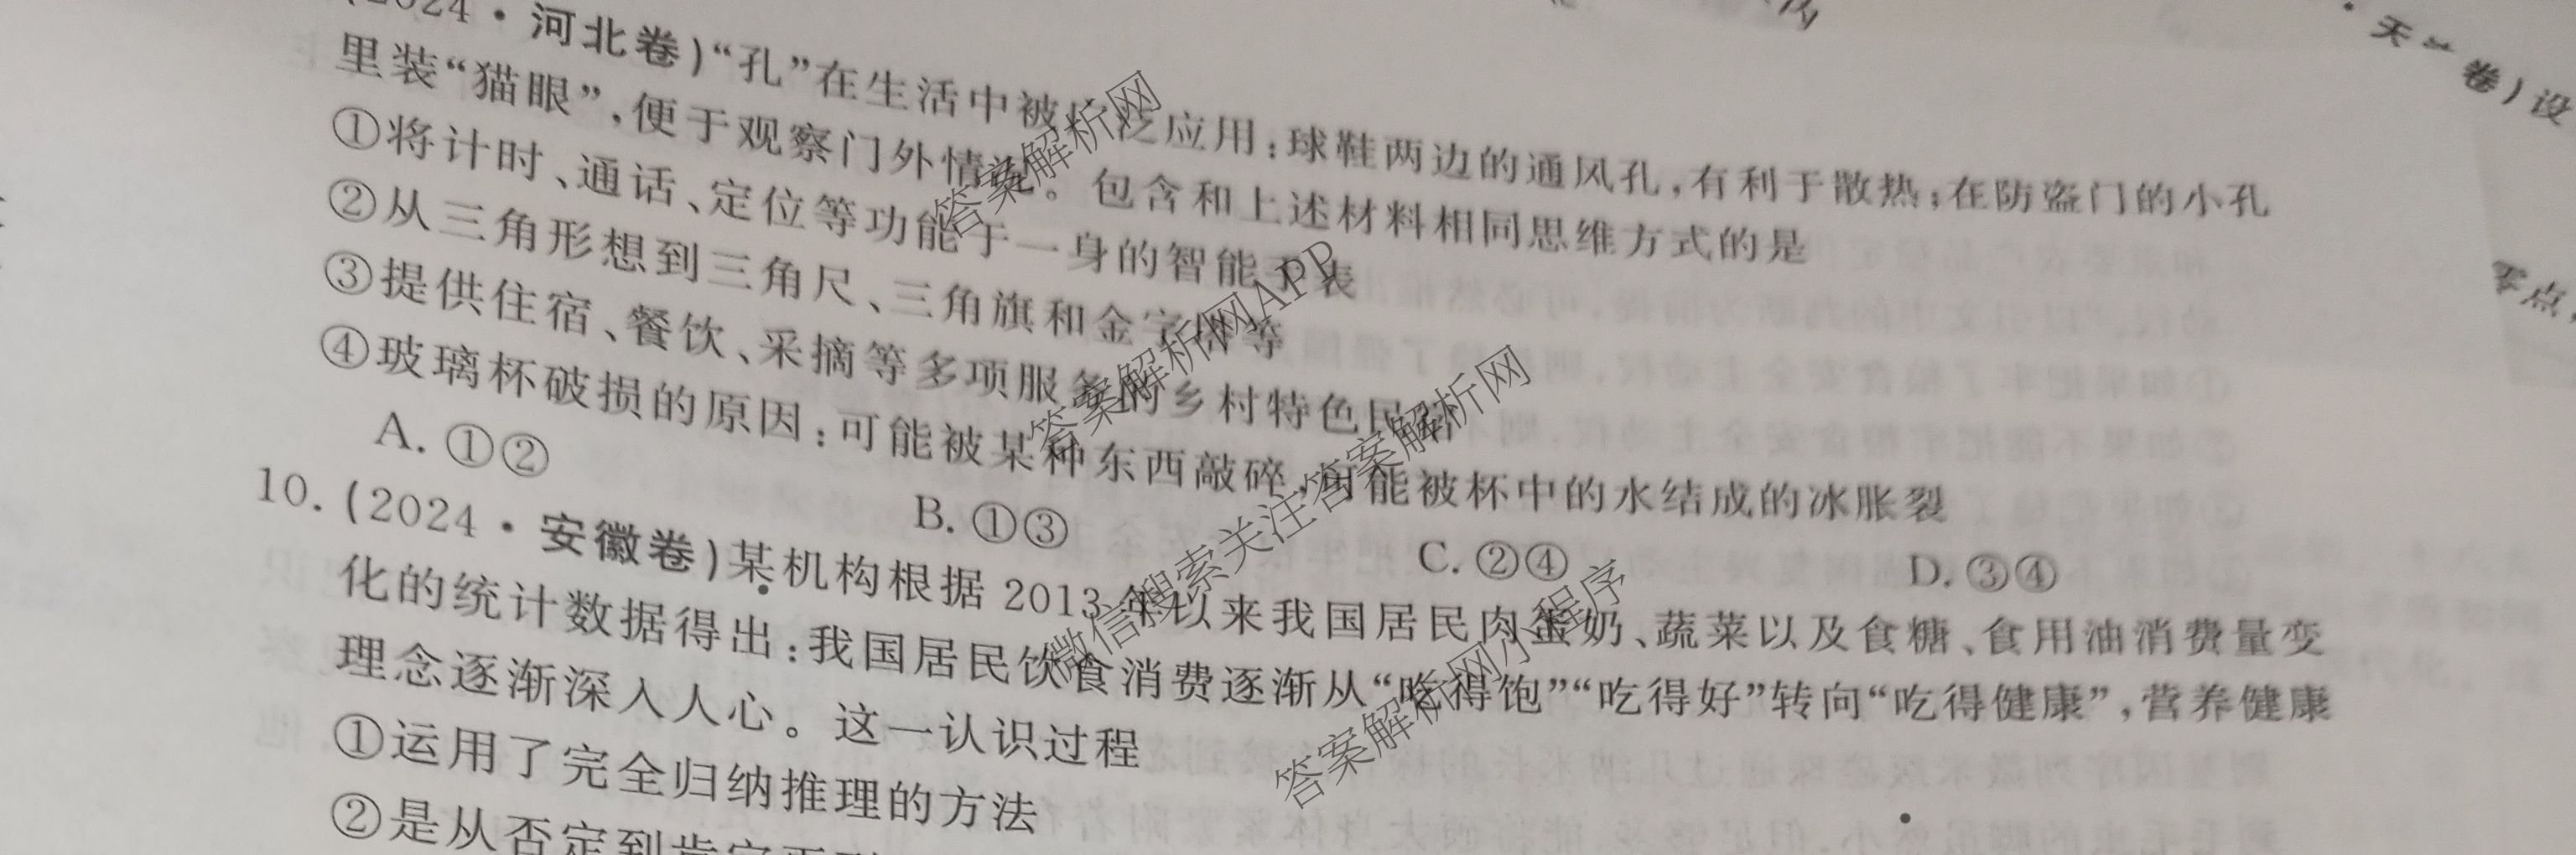 (2024·河北卷)“孔”在生活中被广泛应用:球鞋两边的通风孔,有利于散热;在防盗门的小孔
里装“猫眼”,便于观察门外情况。包含和上述材料相同思维方式的是
①将计时、通话、定位等功能于一身的智能手表
②从三角形想到三角尺、三角旗和金字塔等
③提供住宿、餐饮、采摘等多项服务的乡村特色民宿
④玻璃杯破损的原因:可能被某种东西敲碎,可能被杯中的水结成的冰胀裂
A. ①②
B. ①③
C. ②④
D. ③④
10. (2024·安徽卷)某机构根据 2013 年以来我国居民肉蛋奶、蔬菜以及食糖、食用油消费量变
化的统计数据得出:我国居民饮食消费逐渐从“吃得饱”“吃得好”转向“吃得健康”,营养健康
理念逐渐深入人心。这一认识过程
①运用了完全归纳推理的方法
②是从否定到肯定
卷)设
零点,
答案解析网
答案解析网APP
微信搜索关注答案解析网
答案解析网小程序